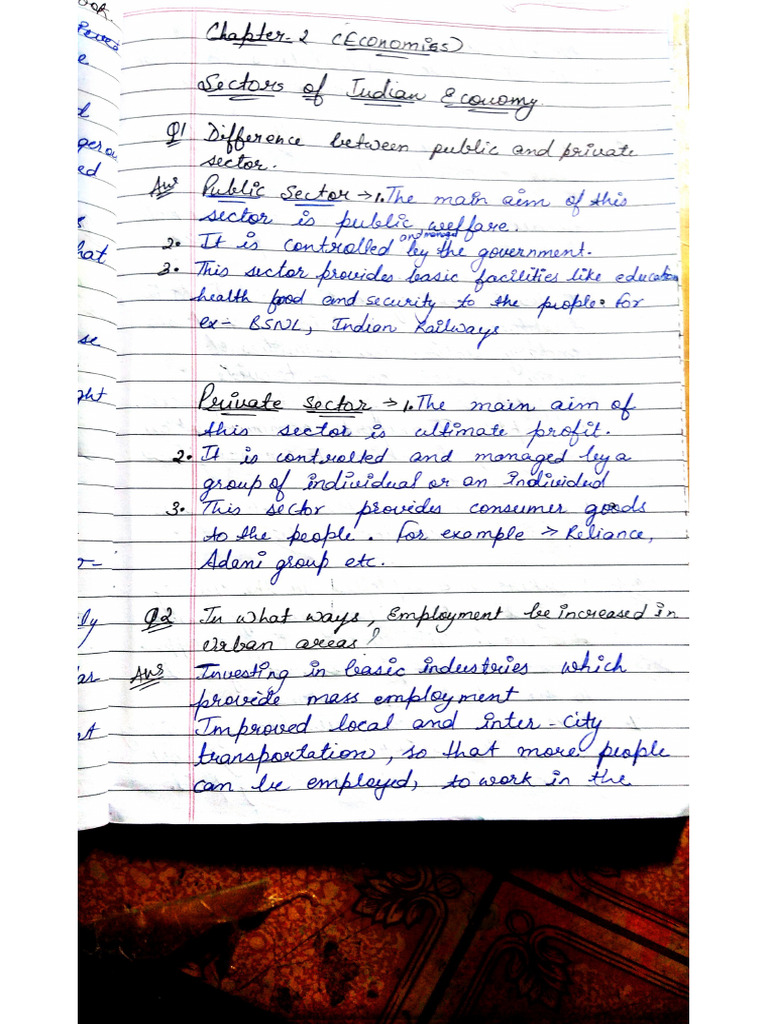 Chapter-2 (Economics)
Sectors of Indian Economy
Q1 Difference between public and private
sector.
Ans Public Sector → 1. The main aim of this
sector is public welfare.
2. It is controlled and managed by the government.
3. This sector provides basic facilities like education
health food and security to the people. For
ex- BSNL, Indian Railways
Private sector → 1. The main aim of
this sector is ultimate profit.
2. It is controlled and managed by a
group of individual or an individed
3. This sector provides consumer goods
to the people. For example → Reliance,
Adani group etc.
Q2 In what ways, Employment be increased in
urban areas?
Ans Investing in basic industries which
provide mass employment
Improved local and inter-city
transportation, so that more people
can be employed, to work in the